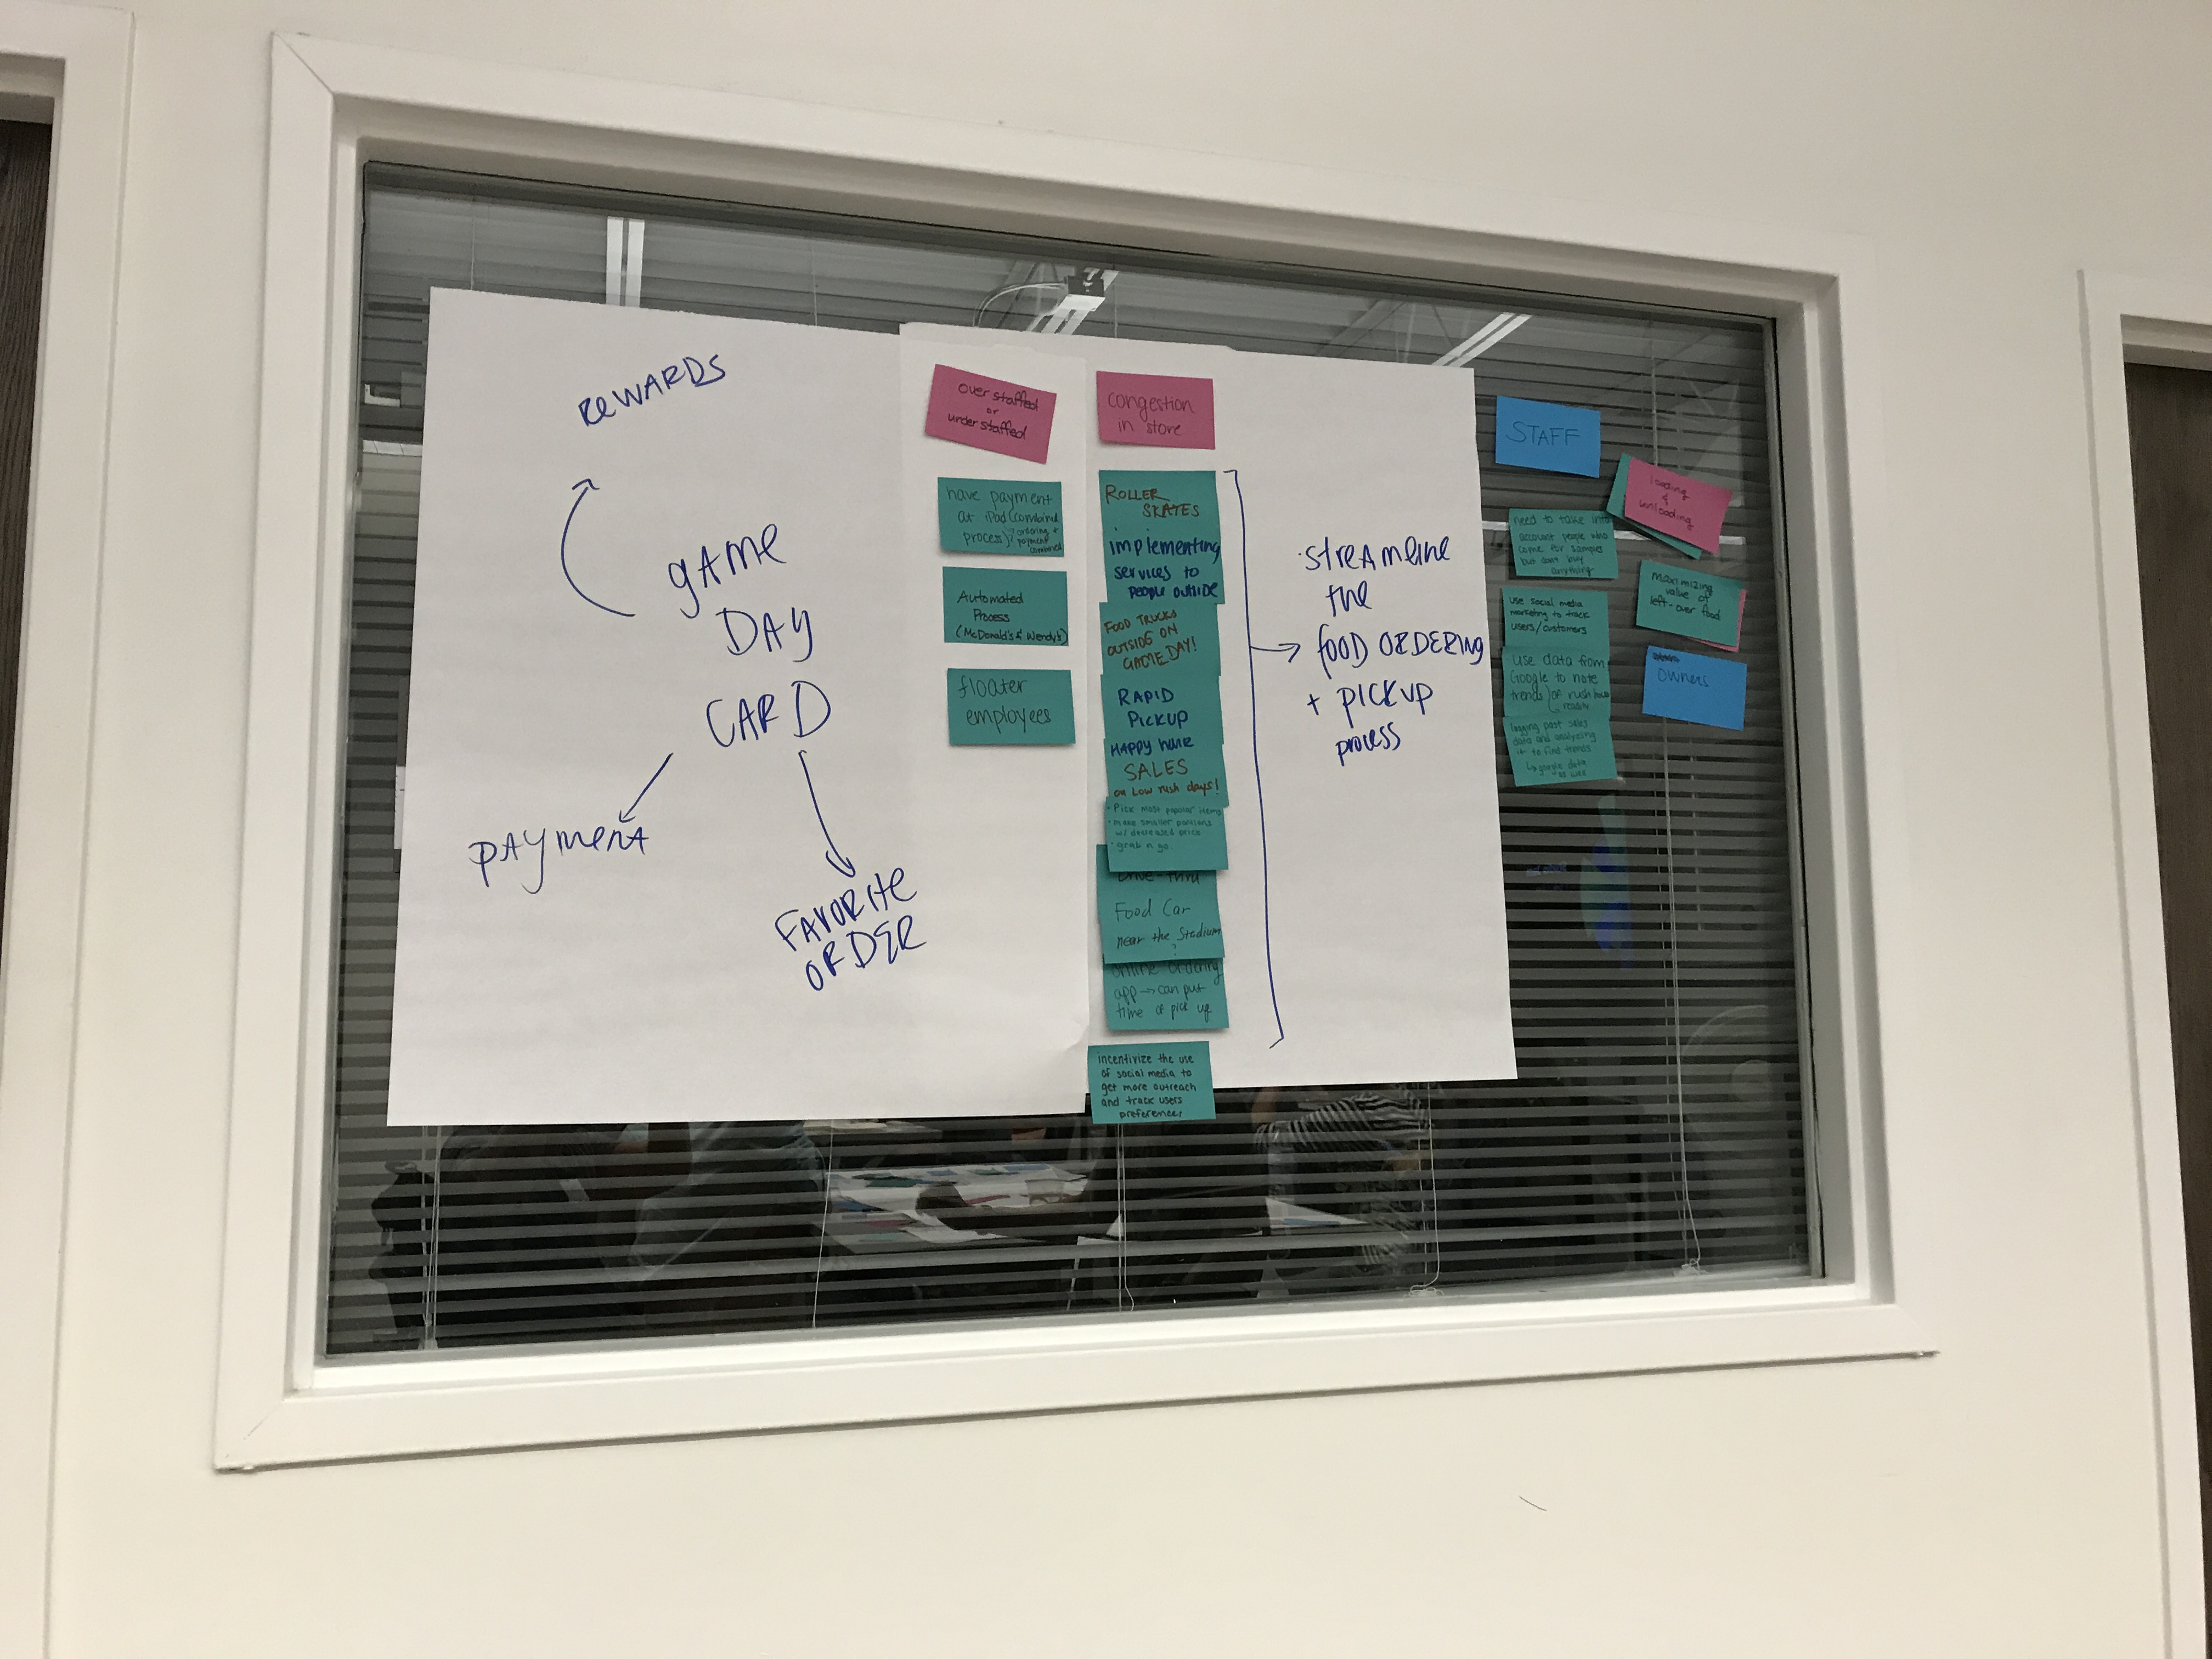 REWARDS
GAME
DAY
CARD
PAYMENT
FAVORITE
ORDER
over staffed
or
under staffed
have payment
at iPad (combined
process)
ordering +
payment
combined
Automated
Process
(McDonald's & Wendy's)
floater
employees
congestion
in store
ROLLER
SKATES
implementing
services to
people outside
FOOD TRUCKS
OUTSIDE ON
GAMEDAY!
RAPID
PICKUP
HAPPY HOUR
SALES
on Low rush days!
• Pick most popular items
• make smaller portions
w/ decreased price
• grab n go
Drive-thru
Food Car
near the Stadium
online ordering
app → can put
time of pick up
incentivize the use
of social media to
get more outreach
and track users
preferences
• STREAMLINE
the
FOOD ORDERING
+ PICKUP
PROCESS
STAFF
loading
&
unloading
need to take into
account people who
come for samples
but don't buy
anything
use social media
marketing to track
users/customers
use data from
Google to note
trends of rush hour
logging past sales
data and analyzing
it to find trends
↳ google data
as well
maximizing
value of
left-over food
owners